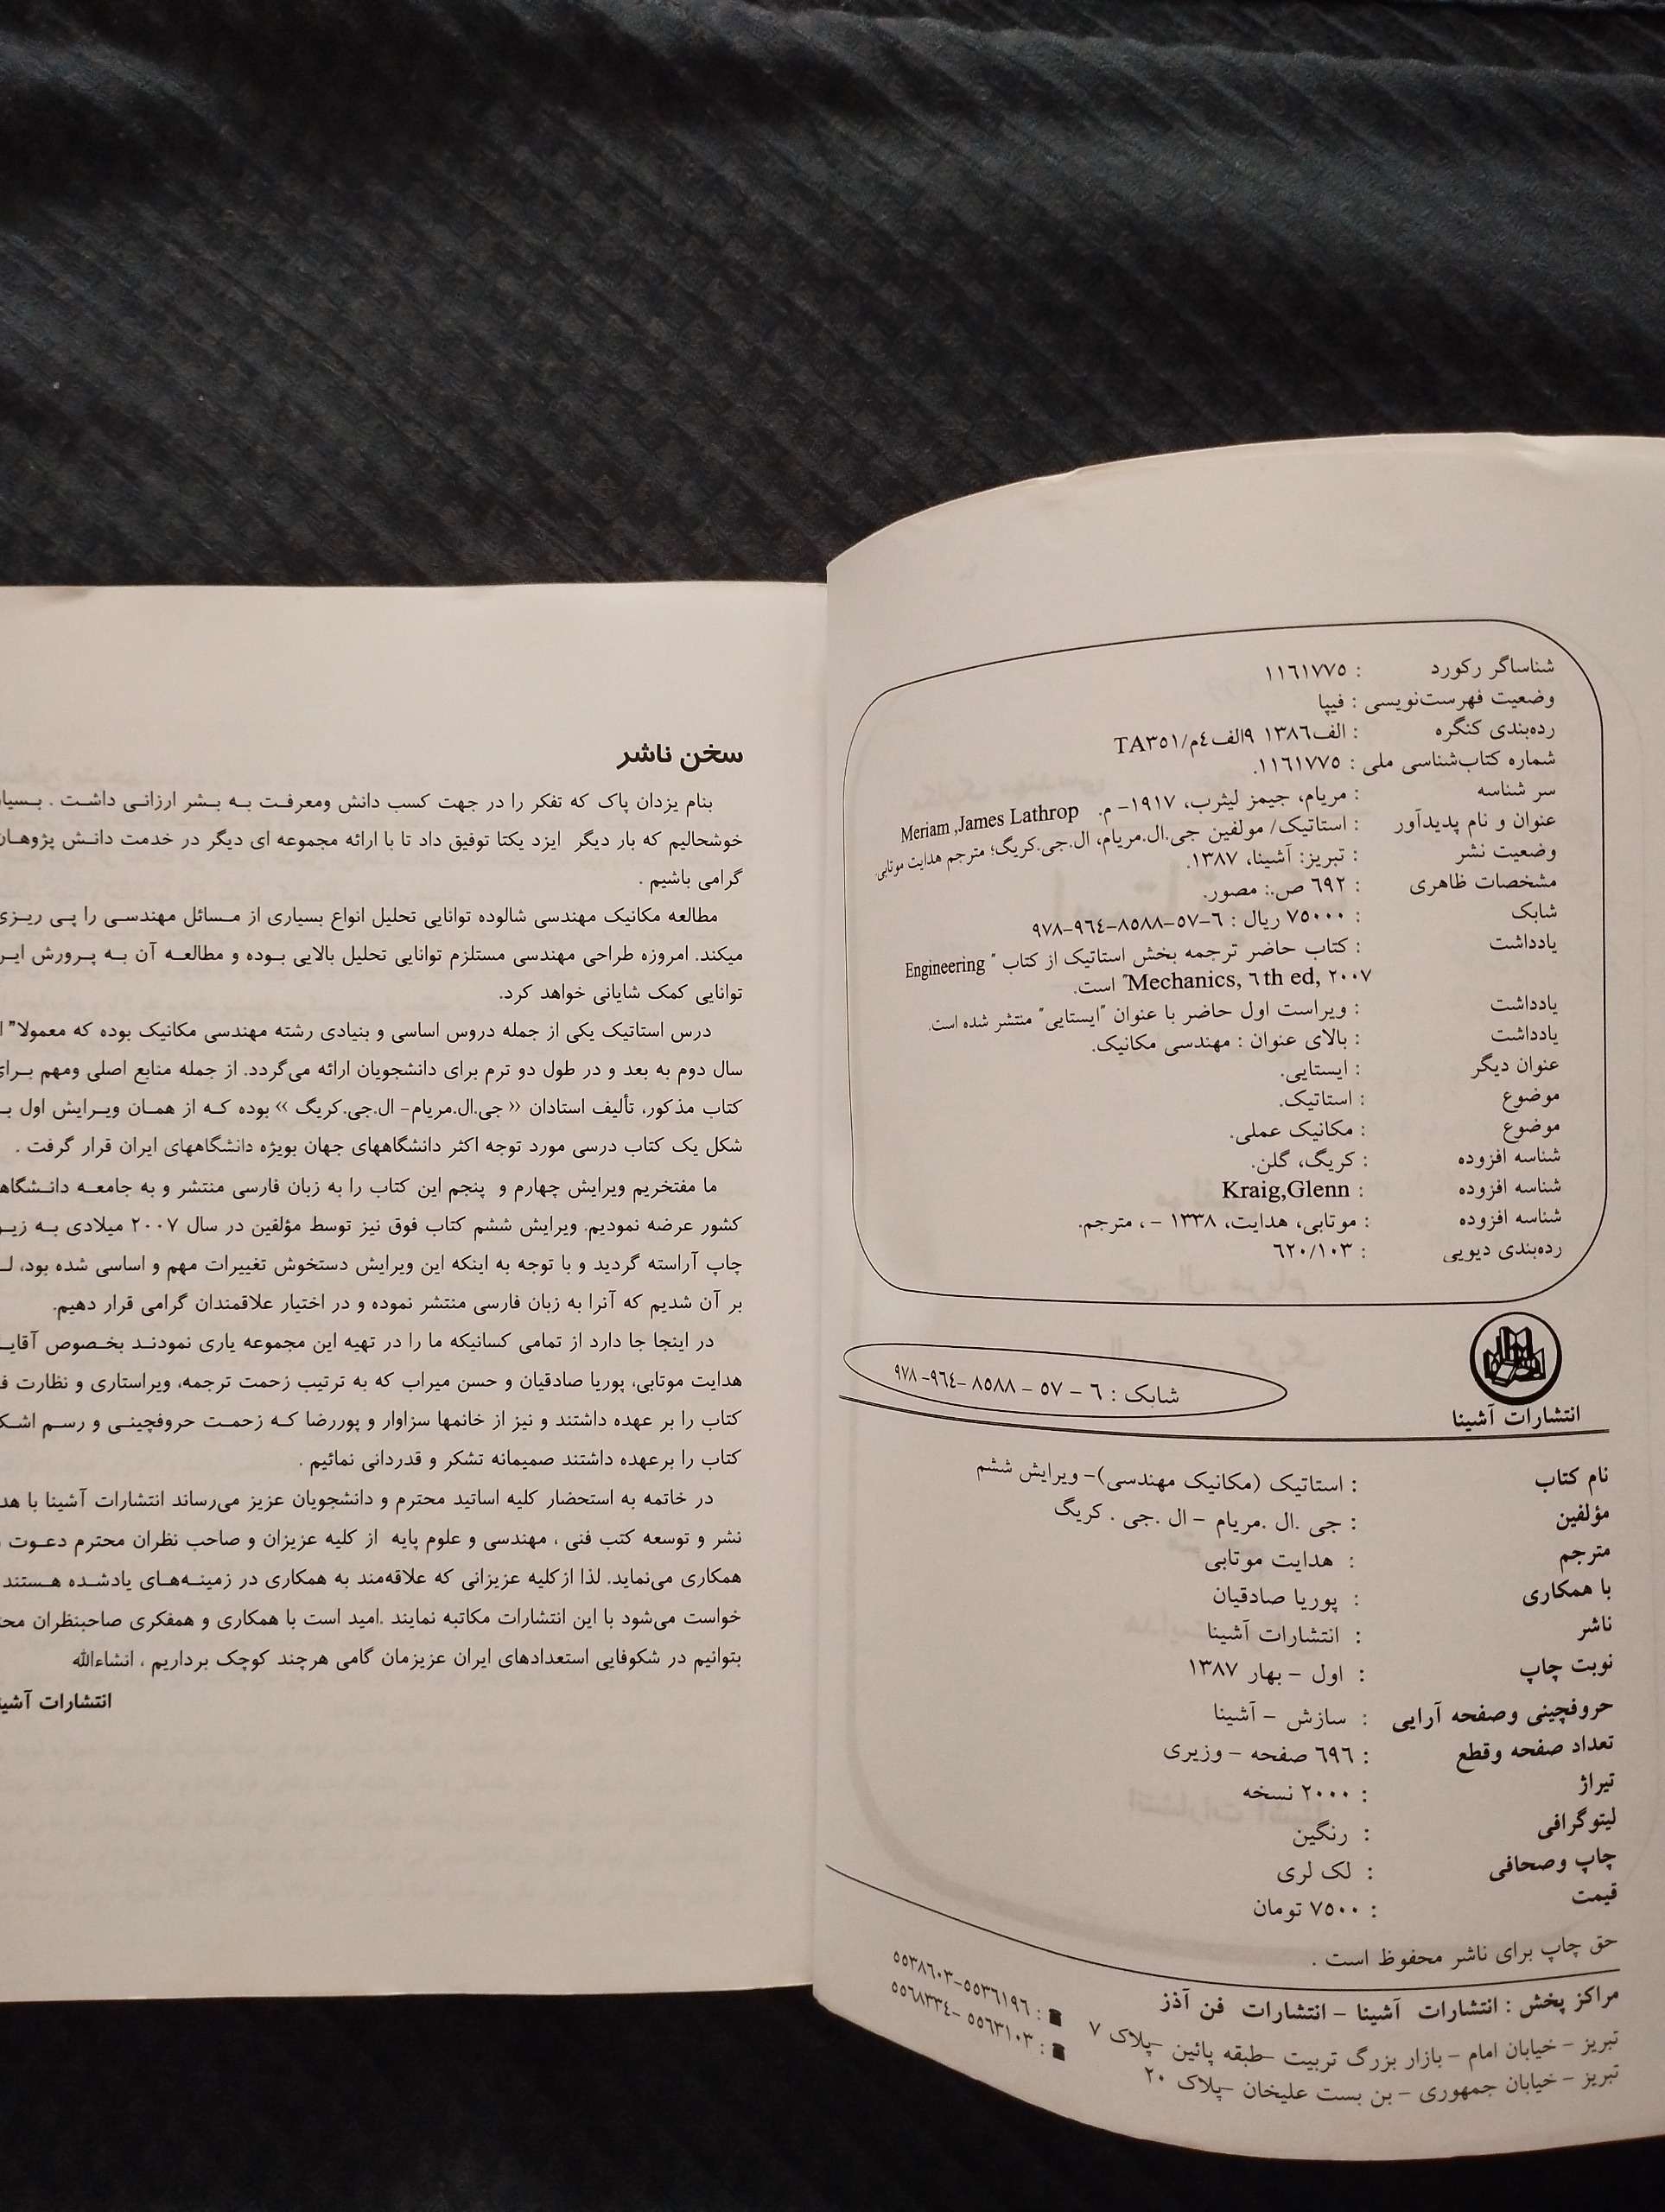 شناساگر رکورد : ۱۱۶۱۷۷۵
وضعیت فهرست‌نویسی : فیپا
رده‌بندی کنگره : الف۱۳۸٦ ۹الف٤م/TA۳٥۱
شماره کتاب‌شناسی ملی : ۱۱٦۱۷۷٥.
سر شناسه : مریام، جیمز لیثرب، ۱۹۱۷- م. Meriam ,James Lathrop
عنوان و نام پدیدآور : استاتیک/ مولفین جی.ال.مریام، ال.جی.کریگ؛ مترجم هدایت موتابی.
وضعیت نشر : تبریز: آشینا، ۱۳۸۷.
مشخصات ظاهری : ٦۹۲ ص.: مصور.
شابک : ۷٥۰۰۰ ریال : ٦-٥۷-۸٥۸۸-۹٦٤-۹۷۸
یادداشت : کتاب حاضر ترجمه بخش استاتیک از کتاب " Engineering
Mechanics, ٦th ed, ۲۰۰۷" است.
یادداشت : ویراست اول حاضر با عنوان "ایستایی" منتشر شده است.
یادداشت : بالای عنوان : مهندسی مکانیک.
عنوان دیگر : ایستایی.
موضوع : استاتیک.
موضوع : مکانیک عملی.
شناسه افزوده : کریگ، گلن.
شناسه افزوده : Kraig,Glenn
شناسه افزوده : موتابی، هدایت، ۱۳۳۸ - ، مترجم.
رده‌بندی دیویی : ٦۲۰/۱۰۳
شابک : ٦ - ٥۷ - ۸٥۸۸ -۹٦٤- ۹۷۸
انتشارات آشینا
نام کتاب : استاتیک (مکانیک مهندسی)- ویرایش ششم
مؤلفین : جی .ال .مریام - ال .جی . کریگ
مترجم : هدایت موتابی
با همکاری : پوریا صادقیان
ناشر : انتشارات آشینا
نوبت چاپ : اول - بهار ۱۳۸۷
حروفچینی وصفحه آرایی : سازش - آشینا
تعداد صفحه وقطع : ٦۹٦ صفحه - وزیری
تیراژ : ۲۰۰۰ نسخه
لیتوگرافی : رنگین
چاپ وصحافی : لک لری
قیمت : ۷٥۰۰ تومان
حق چاپ برای ناشر محفوظ است .
مراکز پخش : انتشارات آشینا - انتشارات فن آذز
تبریز - خیابان امام - بازار بزرگ تربیت -طبقه پائین -پلاک ۷ : ٥٥۳٦۱۹٦-٥٥۳۸٦۰۳
تبریز - خیابان جمهوری - بن بست علیخان -پلاک ۲۰ : ٥٥٦۳۱۰۳ -٥٥٦۸۳۳٤
سخن ناشر
بنام یزدان پاک که تفکر را در جهت کسب دانش ومعرفت به بشر ارزانی داشت .
خوشحالیم که بار دیگر ایزد یکتا توفیق داد تا با ارائه مجموعه ای دیگر در خدمت دانش پژوهان
گرامی باشیم .
مطالعه مکانیک مهندسی شالوده توانایی تحلیل انواع بسیاری از مسائل مهندسی را پی ریزی
میکند. امروزه طراحی مهندسی مستلزم توانایی تحلیل بالایی بوده و مطالعه آن به پرورش این
توانایی کمک شایانی خواهد کرد.
درس استاتیک یکی از جمله دروس اساسی و بنیادی رشته مهندسی مکانیک بوده که معمولا"
سال دوم به بعد و در طول دو ترم برای دانشجویان ارائه می‌گردد. از جمله منابع اصلی ومهم برای
کتاب مذکور، تألیف استادان « جی.ال.مریام- ال.جی.کریگ » بوده که از همان ویرایش اول
شکل یک کتاب درسی مورد توجه اکثر دانشگاههای جهان بویژه دانشگاههای ایران قرار گرفت .
ما مفتخریم ویرایش چهارم و پنجم این کتاب را به زبان فارسی منتشر و به جامعه
کشور عرضه نمودیم. ویرایش ششم کتاب فوق نیز توسط مؤلفین در سال ۲۰۰۷ میلادی به
چاپ آراسته گردید و با توجه به اینکه این ویرایش دستخوش تغییرات مهم و اساسی شده بود،
بر آن شدیم که آنرا به زبان فارسی منتشر نموده و در اختیار علاقمندان گرامی قرار دهیم.
در اینجا جا دارد از تمامی کسانیکه ما را در تهیه این مجموعه یاری نمودند بخصوص
هدایت موتابی، پوریا صادقیان و حسن میراب که به ترتیب زحمت ترجمه، ویراستاری و نظارت
کتاب را بر عهده داشتند و نیز از خانمها سزاوار و پوررضا که زحمت حروفچینی و رسم
کتاب را برعهده داشتند صمیمانه تشکر و قدردانی نمائیم .
در خاتمه به استحضار کلیه اساتید محترم و دانشجویان عزیز می‌رساند انتشارات آشینا با
نشر و توسعه کتب فنی ، مهندسی و علوم پایه از کلیه عزیزان و صاحب نظران محترم دعوت
همکاری می‌نماید. لذا ازکلیه عزیزانی که علاقه‌مند به همکاری در زمینه‌های یادشده هستند
خواست می‌شود با این انتشارات مکاتبه نمایند .امید است با همکاری و همفکری صاحبنظران
بتوانیم در شکوفایی استعدادهای ایران عزیزمان گامی هرچند کوچک برداریم ، انشاءالله
انتشارات